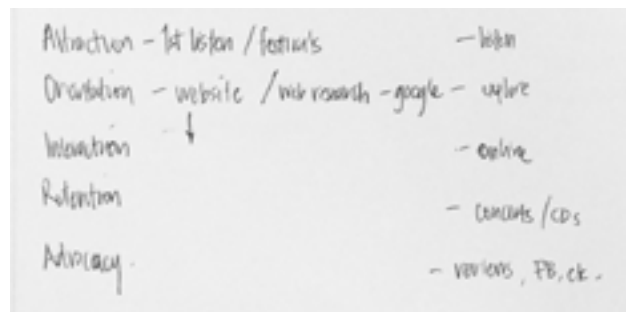 Attraction - 1st listen / festivals - listen
Orientation - website / web research - google - explore
Interaction - online
Retention - concerts / CDs
Advocacy. - reviews, FB, etc.